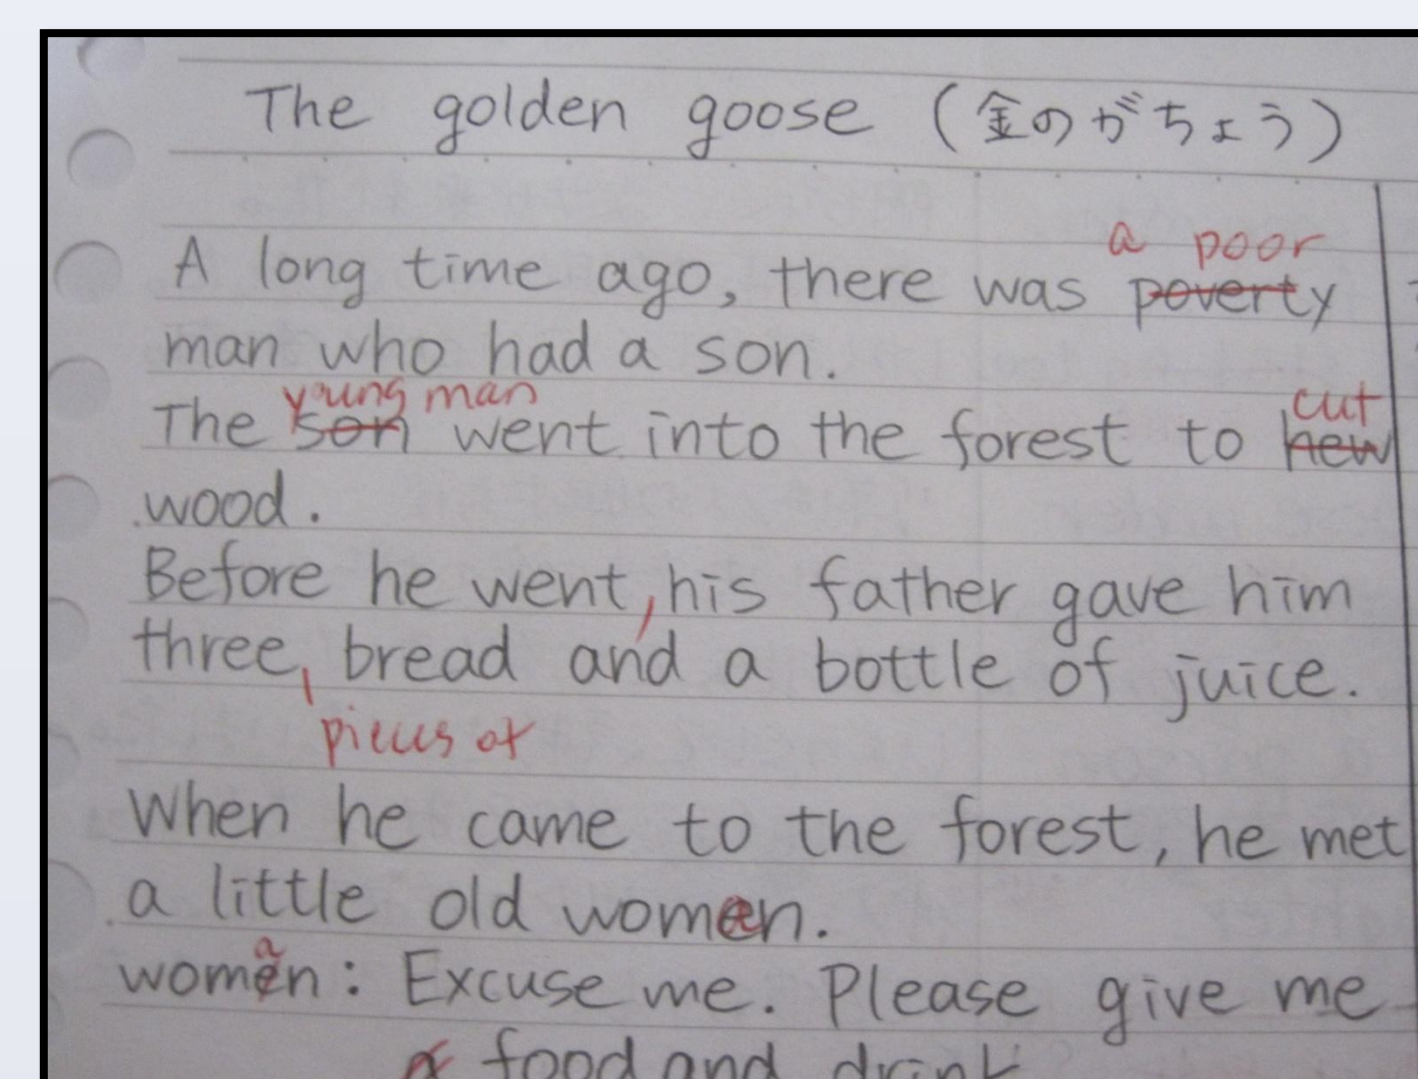 The golden goose (金のがちょう)
a poor
A long time ago, there was poverty
man who had a son.
young man
cut
The son went into the forest to hew
wood.
Before he went, his father gave him
three, bread and a bottle of juice.
pieces of
When he came to the forest, he met
a little old woman.
a
women: Excuse me. Please give me
a food and drink